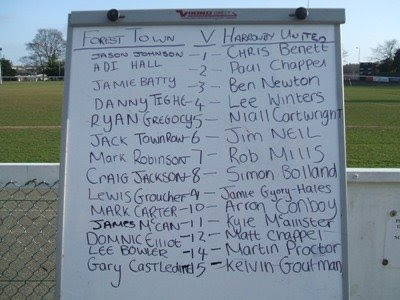 VIKING
FOREST TOWN V HARROWBY UNITED
JASON JOHNSON - 1 - CHRIS Benett
ADI HALL - 2 - Paul Chappel
JAMIE BATTY - 3 - Ben Newton
DANNY TIGHE - 4 - Lee Winters
RYAN GREGORY - 5 - Niall Cartwright
JACK TOWNROW - 6 - Jim NEIL
MARK ROBINSON - 7 - Rob Mills
CRAIG JACKSON - 8 - Simon Bolland
Lewis Groucher - 9 - Jamie Gyory-Hales
MARK CARTER - 10 - Arron Conboy
JAMES McCAN - 11 - Kyle Mallister
DOMNIC Elliot - 12 - Matt Chappel
LEE BOWLER - 14 - Martin Proctor
Gary Castledine 15 - Kelvin Goutman